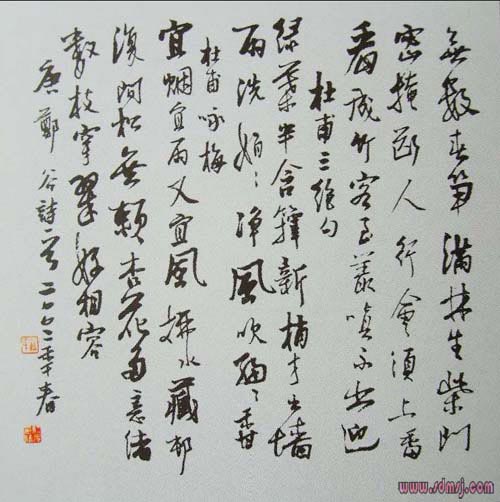 無數春笋滿林生柴門
密掩斷人行會須上番
看成竹客至叢嗔不出迎
杜甫三絕句
绿葉半含籜新梢才出墙
雨洗娟々净風吹細々香
杜甫咏梅
宜烟宜雨又宜風拂水藏邨
復間松無賴杏花多意緒
數枝穿翠好相容
唐鄭谷詩一首二〇〇二年春
www.sdmsj.com